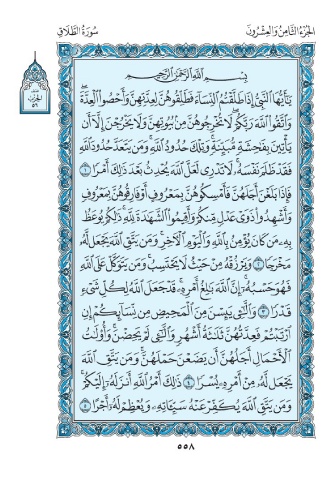 الجزء الثامن والعشرون
سورة الطلاق
الحزب
٥٦
بِسْمِ اللَّهِ الرَّحْمَٰنِ الرَّحِيمِ
يَٰٓأَيُّهَا النَّبِيُّ إِذَا طَلَّقْتُمُ النِّسَآءَ فَطَلِّقُوهُنَّ لِعِدَّتِهِنَّ وَأَحْصُوا الْعِدَّةَ
وَاتَّقُوا اللَّهَ رَبَّكُمْ لَا تُخْرِجُوهُنَّ مِنۢ بُيُوتِهِنَّ وَلَا يَخْرُجْنَ إِلَّآ أَن
يَأْتِينَ بِفَٰحِشَةٍ مُّبَيِّنَةٍ وَتِلْكَ حُدُودُ اللَّهِ وَمَن يَتَعَدَّ حُدُودَ اللَّهِ
فَقَدْ ظَلَمَ نَفْسَهُۥ لَا تَدْرِي لَعَلَّ اللَّهَ يُحْدِثُ بَعْدَ ذَٰلِكَ أَمْرًا ١
فَإِذَا بَلَغْنَ أَجَلَهُنَّ فَأَمْسِكُوهُنَّ بِمَعْرُوفٍ أَوْ فَارِقُوهُنَّ بِمَعْرُوفٍ
وَأَشْهِدُوا ذَوَيْ عَدْلٍ مِّنكُمْ وَأَقِيمُوا الشَّهَٰدَةَ لِلَّهِ ذَٰلِكُمْ يُوعَظُ
بِهِۦ مَن كَانَ يُؤْمِنُ بِاللَّهِ وَالْيَوْمِ الْءَاخِرِ وَمَن يَتَّقِ اللَّهَ يَجْعَل لَّهُۥ
مَخْرَجًا ٢ وَيَرْزُقْهُ مِنْ حَيْثُ لَا يَحْتَسِبُ وَمَن يَتَوَكَّلْ عَلَى اللَّهِ
فَهُوَ حَسْبُهُۥٓ إِنَّ اللَّهَ بَٰلِغُ أَمْرِهِۦ قَدْ جَعَلَ اللَّهُ لِكُلِّ شَيْءٍ
قَدْرًا ٣ وَالَّٰٓـِٔي يَئِسْنَ مِنَ الْمَحِيضِ مِن نِّسَآئِكُمْ إِنِ
ارْتَبْتُمْ فَعِدَّتُهُنَّ ثَلَٰثَةُ أَشْهُرٍ وَالَّٰٓـِٔي لَمْ يَحِضْنَ وَأُولَٰتُ
الْأَحْمَالِ أَجَلُهُنَّ أَن يَضَعْنَ حَمْلَهُنَّ وَمَن يَتَّقِ اللَّهَ
يَجْعَل لَّهُۥ مِنْ أَمْرِهِۦ يُسْرًا ٤ ذَٰلِكَ أَمْرُ اللَّهِ أَنزَلَهُۥٓ إِلَيْكُمْ
وَمَن يَتَّقِ اللَّهَ يُكَفِّرْ عَنْهُ سَيِّـَٔاتِهِۦ وَيُعْظِمْ لَهُۥٓ أَجْرًا ٥
٥٥٨